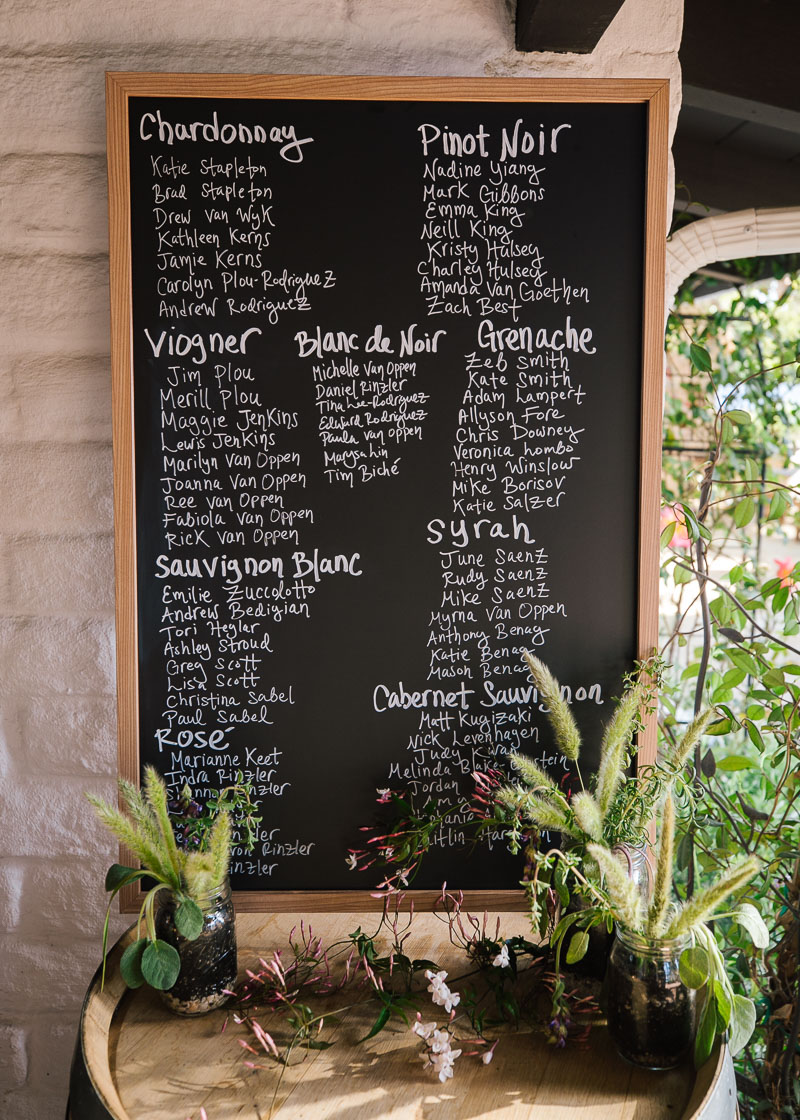 Chardonnay
Katie Stapleton
Brad Stapleton
Drew Van Wyk
Kathleen Kerns
Jamie Kerns
Carolyn Plou-Rodriguez
Andrew Rodriguez
Pinot Noir
Nadine Yiang
Mark Gibbons
Emma King
Neill King
Kristy Hulsey
Charley Hulsey
Amanda Van Goethen
Zach Best
Viogner
Jim Plou
Merill Plou
Maggie Jenkins
Lewis Jenkins
Marilyn Van Oppen
Joanna Van Oppen
Ree Van Oppen
Fabiola Van Oppen
Rick Van Oppen
Blanc de Noir
Michelle Van Oppen
Daniel Rinzler
Tina Lee-Rodriguez
Edward Rodriguez
Paula Van Oppen
Marysa Lin
Tim Biché
Grenache
Zeb Smith
Kate Smith
Adam Lampert
Allyson Fore
Chris Downey
Veronica Lombo
Henry Winslow
Mike Borisov
Katie Salzer
Sauvignon Blanc
Emilie Zuccolotto
Andrew Bedigian
Tori Hegler
Ashley Stroud
Greg Scott
Lisa Scott
Christina Sabel
Paul Sabel
Syrah
June Saenz
Rudy Saenz
Mike Saenz
Myrna Van Oppen
Anthony Benag
Katie Benag
Mason Benag
Rosé
Marianne Keet
Indra Rinzler
Rinzler
Cabernet Sauvignon
Matt Kugizaki
Nick Levenhagen
Judy
Melinda
Jordan